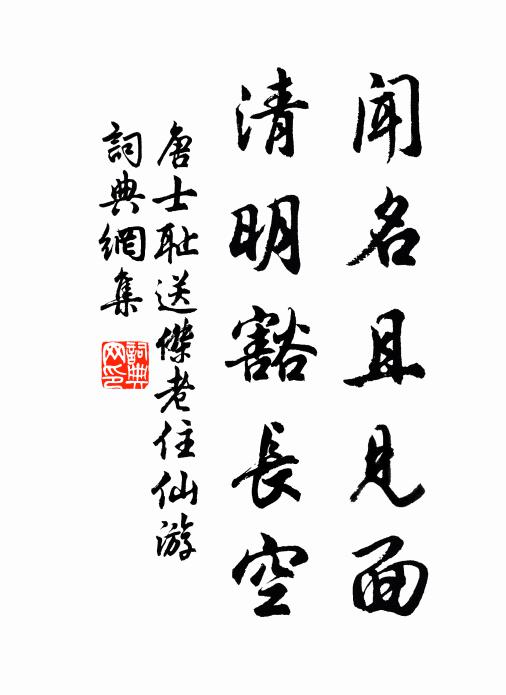 闻名且見面
清明豁長空
唐士耻送傑老住仙游
詞典網集
詞典网印